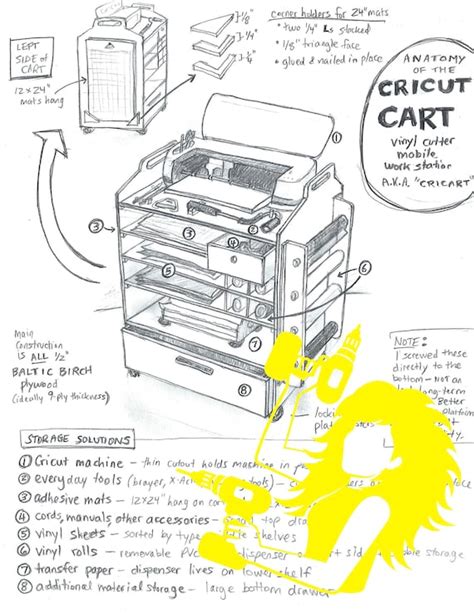 LEFT
SIDE of
CART
12x24"
mats hang
1/8"
1/4"
1/4"
corner holders for 24" mats
* two 1/4" Ls stacked
* 1/8" triangle face
* glued & nailed in place
ANATOMY
OF THE
CRICUT
CART
vinyl cutter
mobile
work station
A.K.A. "CRICART"
①
②
③
④
⑤
⑥
⑦
⑧
Main
construction
is ALL 1/2"
BALTIC BIRCH
plywood
(ideally 9-ply thickness)
NOTE:
I screwed these
directly to the
bottom - not an
long-term
Better
platform
STORAGE SOLUTIONS
① Cricut machine - thin cutout holds machine in
② everyday tools (brayer, X-Ac tools) -
③ adhesive mats - 12x24" hang on
④ cords, manuals, other accessories - top
⑤ vinyl sheets - sorted by type shelves
⑥ vinyl rolls - removable PVC dispenser side storage
⑦ transfer paper - dispenser lives on lower shelf
⑧ additional material storage - large bottom drawer